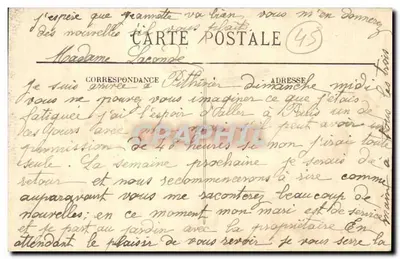 j'espère que Jeannette va bien, vous m'en donnerez
des nouvelles s'il vous plait
CARTE POSTALE
45
Madame Laconde
CORRESPONDANCE ADRESSE
Je suis arrivée à Pithivier dimanche midi
vous ne pouvez vous imaginer ce que j'étais
fatiguée j'ai l'espoir d'aller à Paris un de
ces jours avec peut avoir
permission de 48 heures se non j'irai toute
seule. La semaine prochaine je serais de
retour et nous recommencerons à rire comme
auparavant vous me raconterez beaucoup de
nouvelles; en ce moment mon mari est de service
et je part au jardin avec la propriétaire En
attendant le plaisir de vous revoir je vous serre la
main à tous les trois